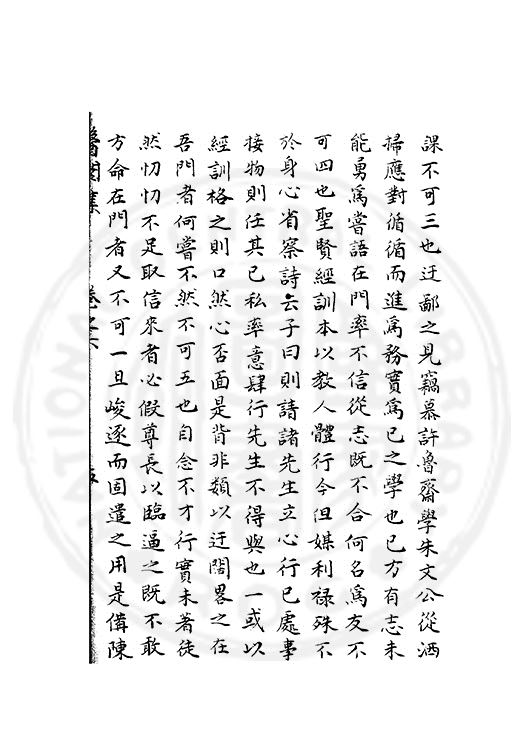 課不可三也迂鄙之見竊慕許魯齋學朱文公從洒
掃應對循循而進為務實為已之學也已方有志未
能勇為嘗語在門率不信從志既不合何名為友不
可四也聖賢經訓本以教人體行今但媒利祿殊不
於身心省察詩云子曰則請諸先生立心行已處事
接物則任其已私率意肆行先生不得與也一或以
經訓格之則口然心否面是背非類以迂闊畧之在
吾門者何嘗不然不可五也自念不才行實未著徒
然忉忉不足取信來者必假尊長以臨逼之既不敢
方命在門者又不可一旦峻逐而固遣之用是僃陳
醫閭集 卷之六 五